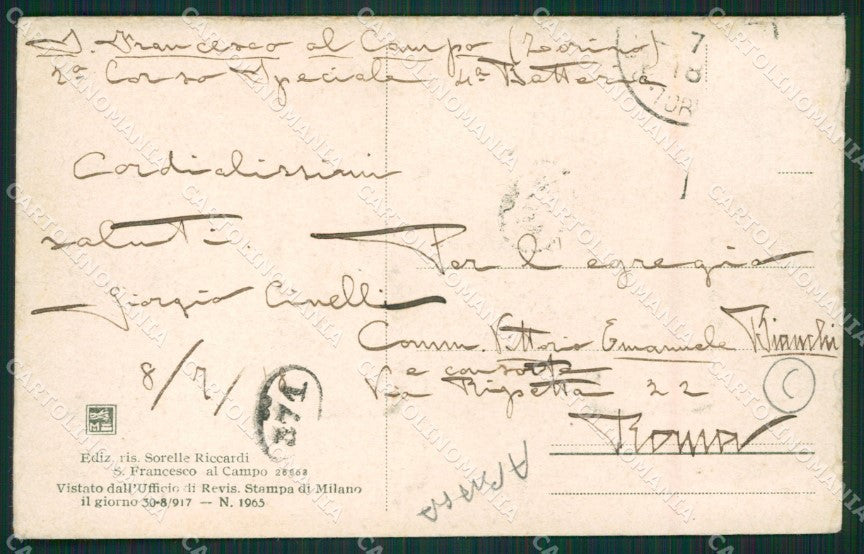 S. Francesco al Campo (Torino)
2º Corso Speciale 4ª Batteria
7
18
TORI
Cordialissimi
saluti
Giorgio Cinelli
8/7/
Per l'egregio
Comm. Vittorio Emanuele Bianchi
e consorte
Via Ripetta 22
Roma
C
371
Ediz. ris. Sorelle Riccardi
S. Francesco al Campo 26668
Vistato dall'Ufficio di Revis. Stampa di Milano
il giorno 30-8/917 — N. 1965
CARTOLINOMANIA